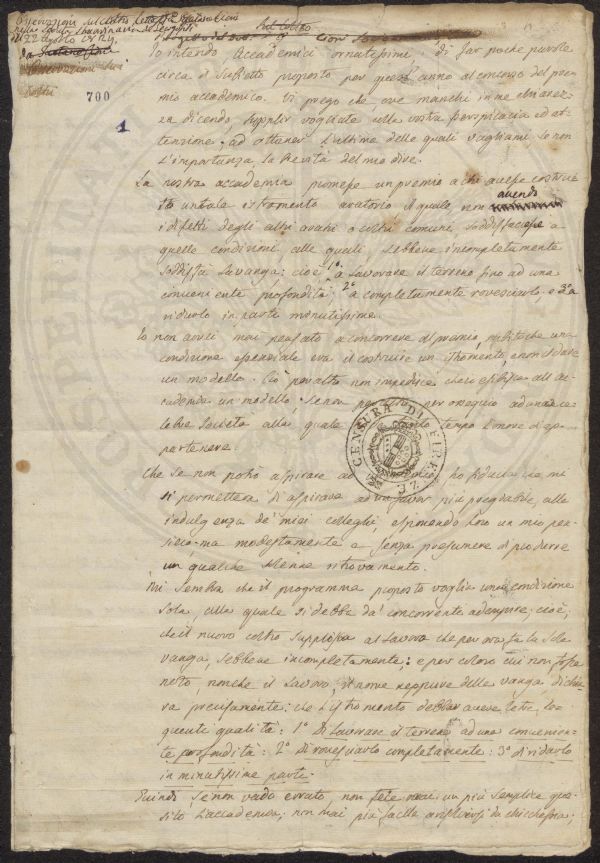 Osservazioni sul coltro
22 agosto 1824
700
1
Io intendo, Accademici ornatissimi di far poche parole
circa il subietto proposto per quest'anno al concorso del pre-
mio accademico. Vi prego che, ove manchi in me chiarez-
za dicendo, supplir vogliate colla vostra perspicacia ed at-
tenzione: ad ottener l'ultima delle quali vagliami se non
l'importanza, la brevità del mio dire.
La nostra accademia promesse un premio a chi avesse costrui-
to un tale istrumento aratorio il quale, non avendo
i difetti degli altri aratri o coltri comuni, soddisfacesse a
quelle condizioni, alle quali, sebbene incompletamente
soddisfa la vanga: cioè 1° a lavorare il terreno fino ad una
conveniente profondità; 2° a completamente rovesciarlo e 3° a
ridurlo in parti minutissime.
Io non avrei mai pensato a concorrere al premio, subito che una
condizione essenziale era il costruire un istromento, e non il dare
un modello. Ciò peraltro non impedisce che io esibisca all'ac-
cademia un modello, se non per altro per ossequio ad una ce-
lebre Società alla quale tempo l'onore di ap-
partenere.
CENSURA DI FIRENZE
Che se non potrò aspirare ad ho fiducia che mi
si permetterà d'aspirare ad un favor più pregiabile, alla
indulgenza de' miei colleghi, esponendo loro un mio pen-
siero ma modestamente e senza presumere di produrre
un qualche ritrovamento.
Mi sembra che il programma proposto voglia una condizione
sola, alla quale si debba da' concorrenti adempire; cioè,
che il nuovo coltro supplisca al lavoro che per ora fa la sola
vanga, sebbene incompletamente: e per coloro cui non fosse
noto, nonché il lavoro, il nome neppure della vanga, dichia-
ra precisamente: che l'istromento debba avere le tre se-
guenti qualità: 1° Di lavorare il terreno ad una convenien-
te profondità: 2° Di rovesciarlo completamente: 3° di ridurlo
in minutissime parti.
Quindi se non vado errato, non fece mai un più semplice que-
sito l'accademia; non mai più facile a sciorsi da chicchessia;